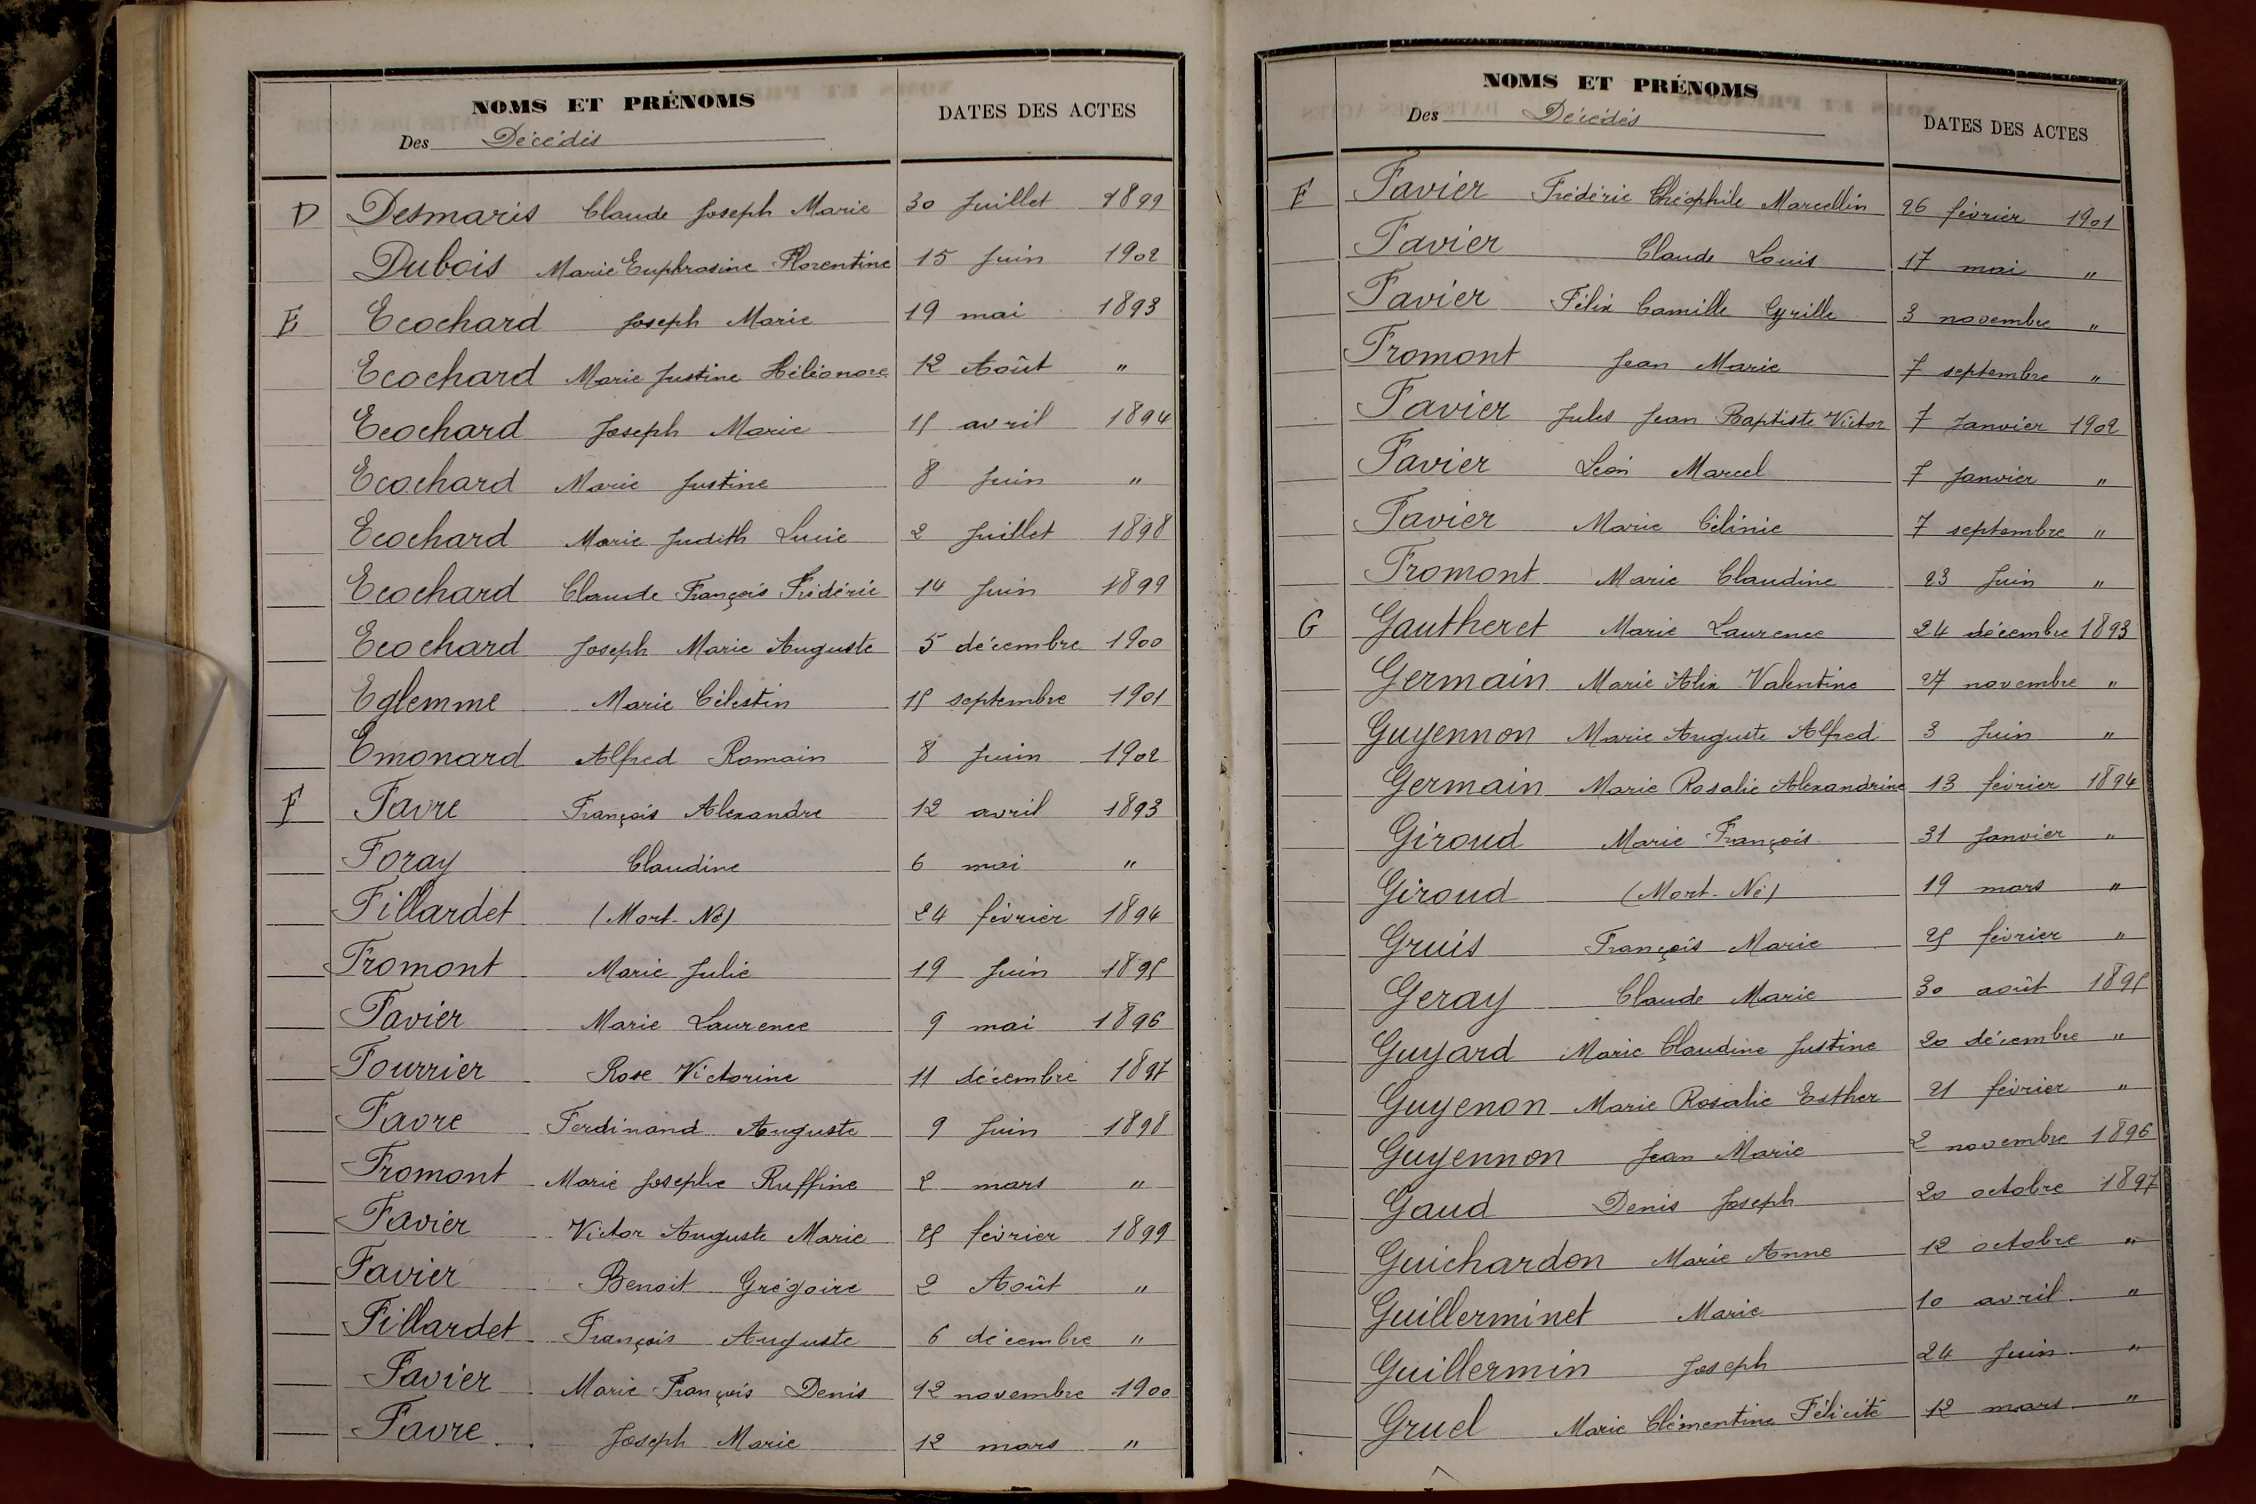 NOMS ET PRÉNOMS
DATES DES ACTES
Des Décédés
D Desmaris Claude Joseph Marie 30 Juillet 1899
Dubois Marie Euphrosine Florentine 15 Juin 1902
E Ecochard Joseph Marie 19 mai 1893
Ecochard Marie Justine Héléonore 12 Août "
Ecochard Joseph Marie 15 avril 1894
Ecochard Marie Justine 8 Juin "
Ecochard Marie Judith Lucie 2 Juillet 1898
Ecochard Claude François Frédéric 14 Juin 1899
Ecochard Joseph Marie Auguste 5 décembre 1900
Eglemme Marie Célestin 15 septembre 1901
Emonard Alfred Romain 8 Juin 1902
F Favre François Alexandre 12 avril 1893
Foray Claudine 6 mai "
Fillardet (Mort-Né) 24 février 1894
Fromont Marie Julie 19 Juin 1895
Favier Marie Laurence 9 mai 1896
Fourrier Rose Victorine 11 décembre 1897
Favre Ferdinand Auguste 9 Juin 1898
Fromont Marie Josephe Ruffine 2 mars "
Favier Victor Auguste Marie 25 février 1899
Favier Benoit Grégoire 2 Août "
Fillardet François Auguste 6 décembre "
Favier Marie François Denis 12 novembre 1900
Favre Joseph Marie 12 mars "
NOMS ET PRÉNOMS
DATES DES ACTES
Des Décédés
F Favier Frédéric Théophile Marcellin 26 février 1901
Favier Claude Louis 17 mai "
Favier Félix Camille Cyrille 3 novembre "
Fromont Jean Marie 7 septembre "
Favier Jules Jean Baptiste Victor 7 Janvier 1902
Favier Léon Marcel 7 Janvier "
Favier Marie Célinie 7 septembre "
Fromont Marie Claudine 23 Juin "
G Gautheret Marie Laurence 24 décembre 1893
Germain Marie Alix Valentine 27 novembre "
Guyennon Marie Auguste Alfred 3 Juin "
Germain Marie Rosalie Alexandrine 13 février 1894
Giroud Marie François 31 Janvier "
Giroud (Mort-Né) 19 mars "
Gruis François Marie 25 février "
Geray Claude Marie 30 août 1895
Guyard Marie Claudine Justine 20 décembre "
Guyenon Marie Rosalie Esther 21 février "
Guyennon Jean Marie 2 novembre 1896
Gaud Denis Joseph 20 octobre 1897
Guichardon Marie Anne 12 octobre "
Guillerminet Marie 10 avril "
Guillermin Joseph 24 Juin "
Gruel Marie Clémentine Félicité 12 mars "